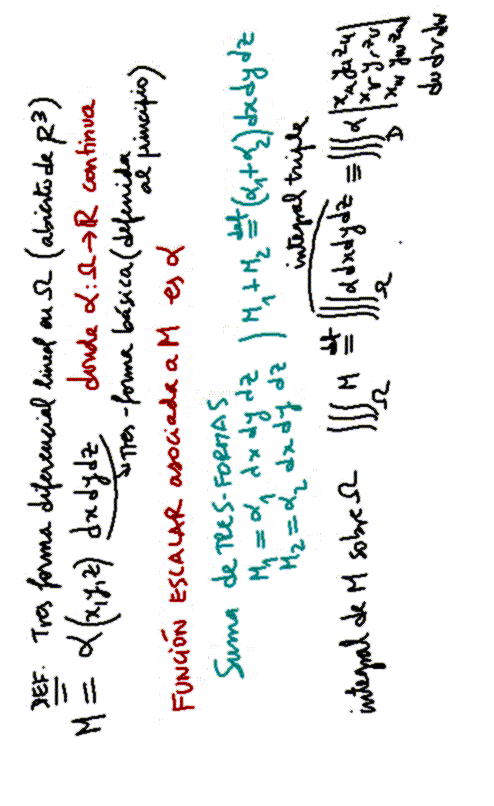 DEF. Tres forma diferencial lineal en Ω (abierto de R³)
M = α(x,y,z) dxdydz donde α: Ω → R continua
Tres-forma básica (definida
al principio)
FUNCIÓN ESCALAR asociada a M es α
Suma de TRES-FORMAS
M₁ = α₁ dx dy dz
M₂ = α₂ dx dy dz
) M₁ + M₂ def= (α₁+α₂) dxdydz
integral triple
integral de M sobre Ω ∭_Ω M def= ∭_Ω α dxdydz = ∭_D α |x_u y_u z_u
x_v y_v z_v
x_w y_w z_w|
du dv dw